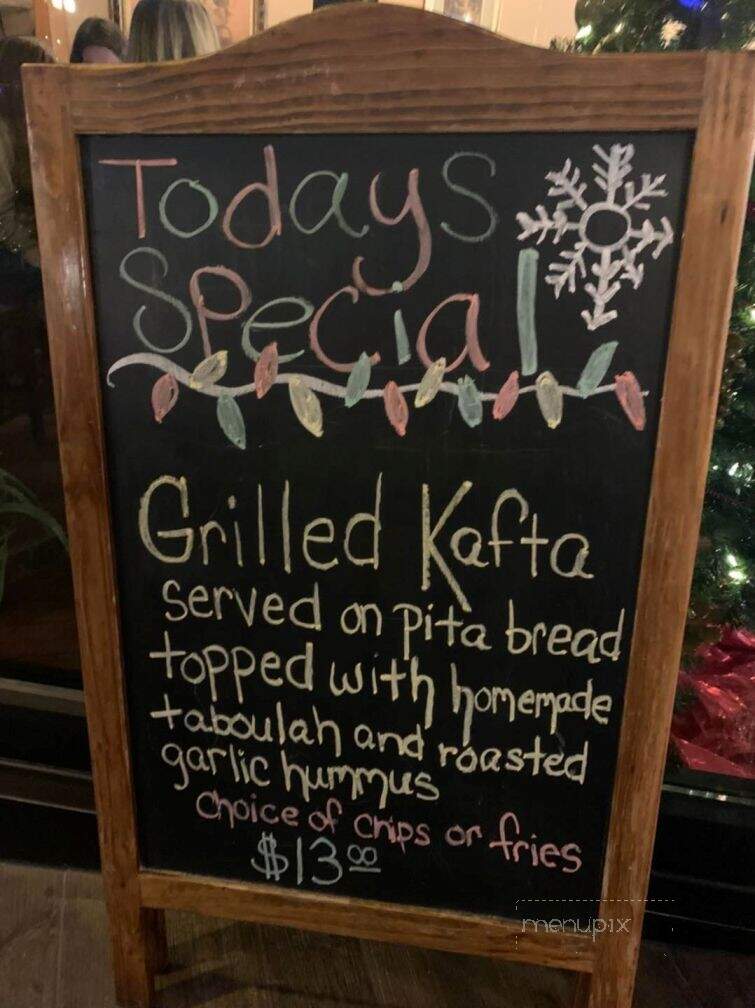 Todays
Special
Grilled Kafta
served on pita bread
topped with homemade
taboulah and roasted
garlic hummus
choice of chips or fries
$13.00
menupix